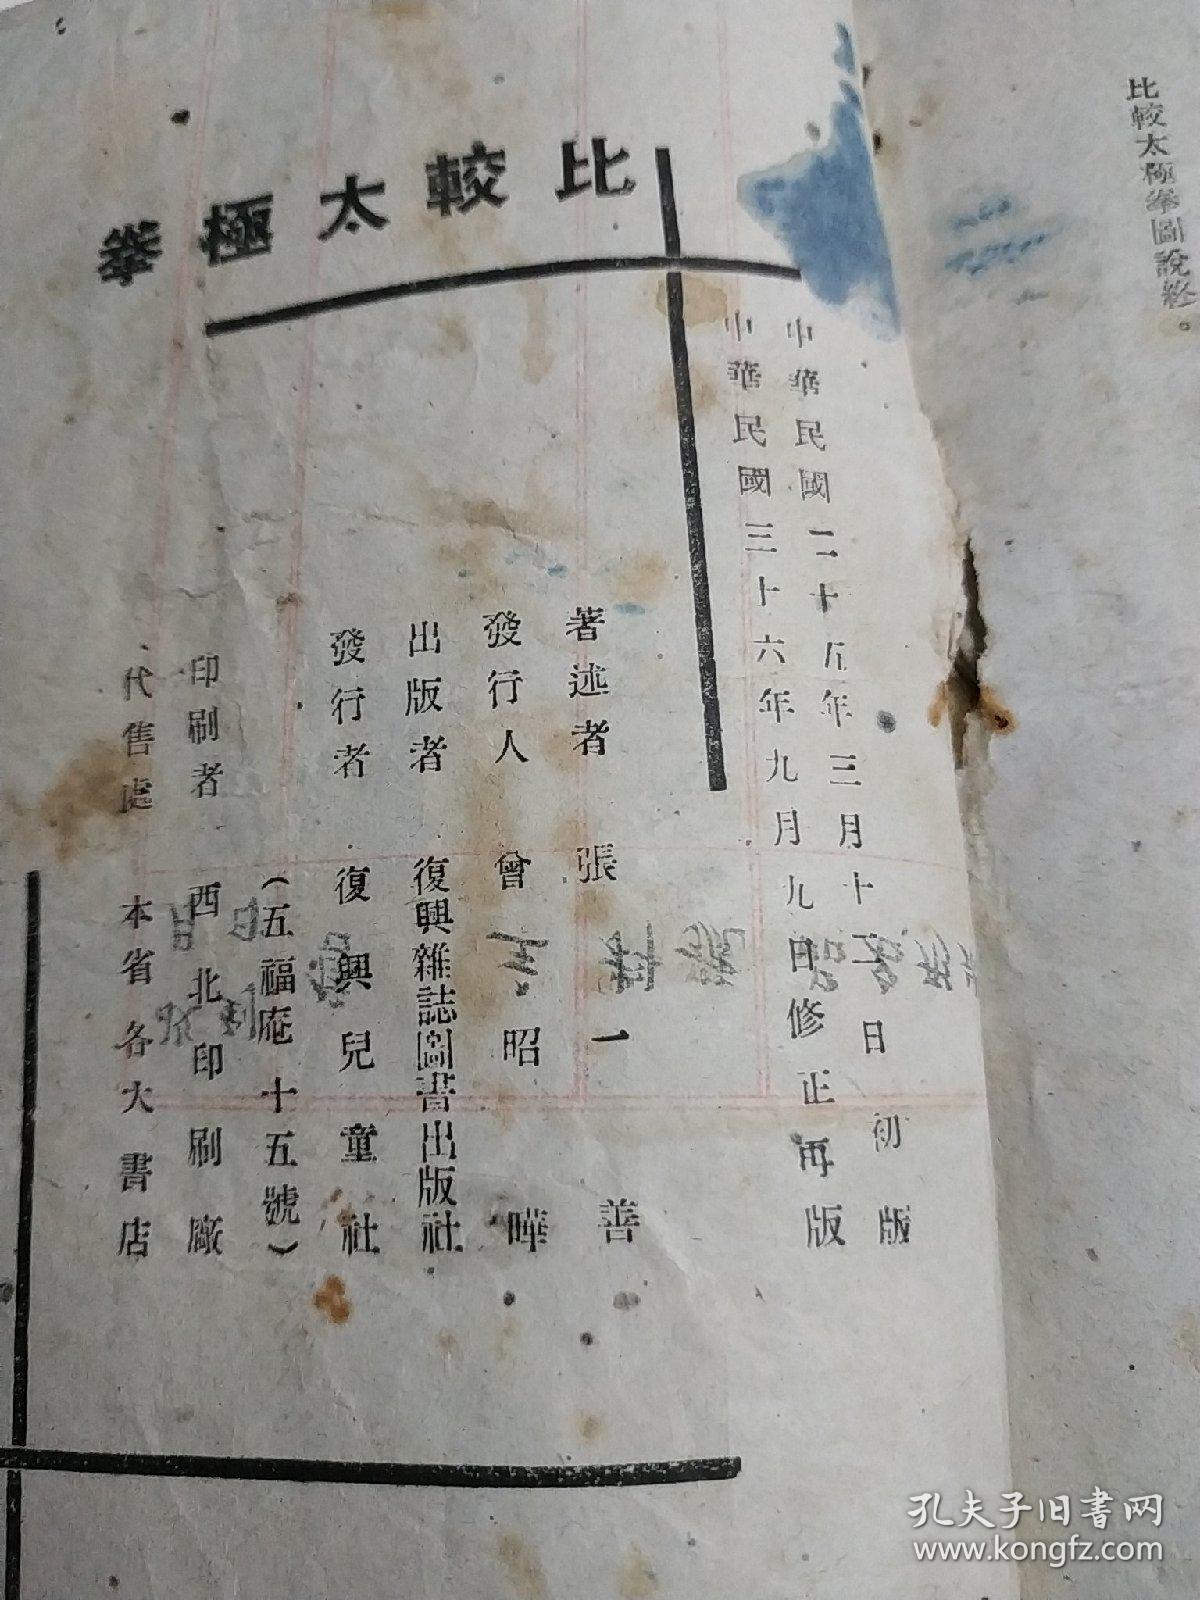 比較太極拳圖說終。
比較太極拳
中華民國二十五年三月十一日初版
中華民國三十六年九月九日修正再版
著述者 張一善
發行人 曾昭曄
出版者 復興雜誌圖書出版社
發行者 復興兒童社
(五福庵十五號)
印刷者 西北印刷廠
代售處 本省各大書店
孔夫子旧书网
www.kongfz.com